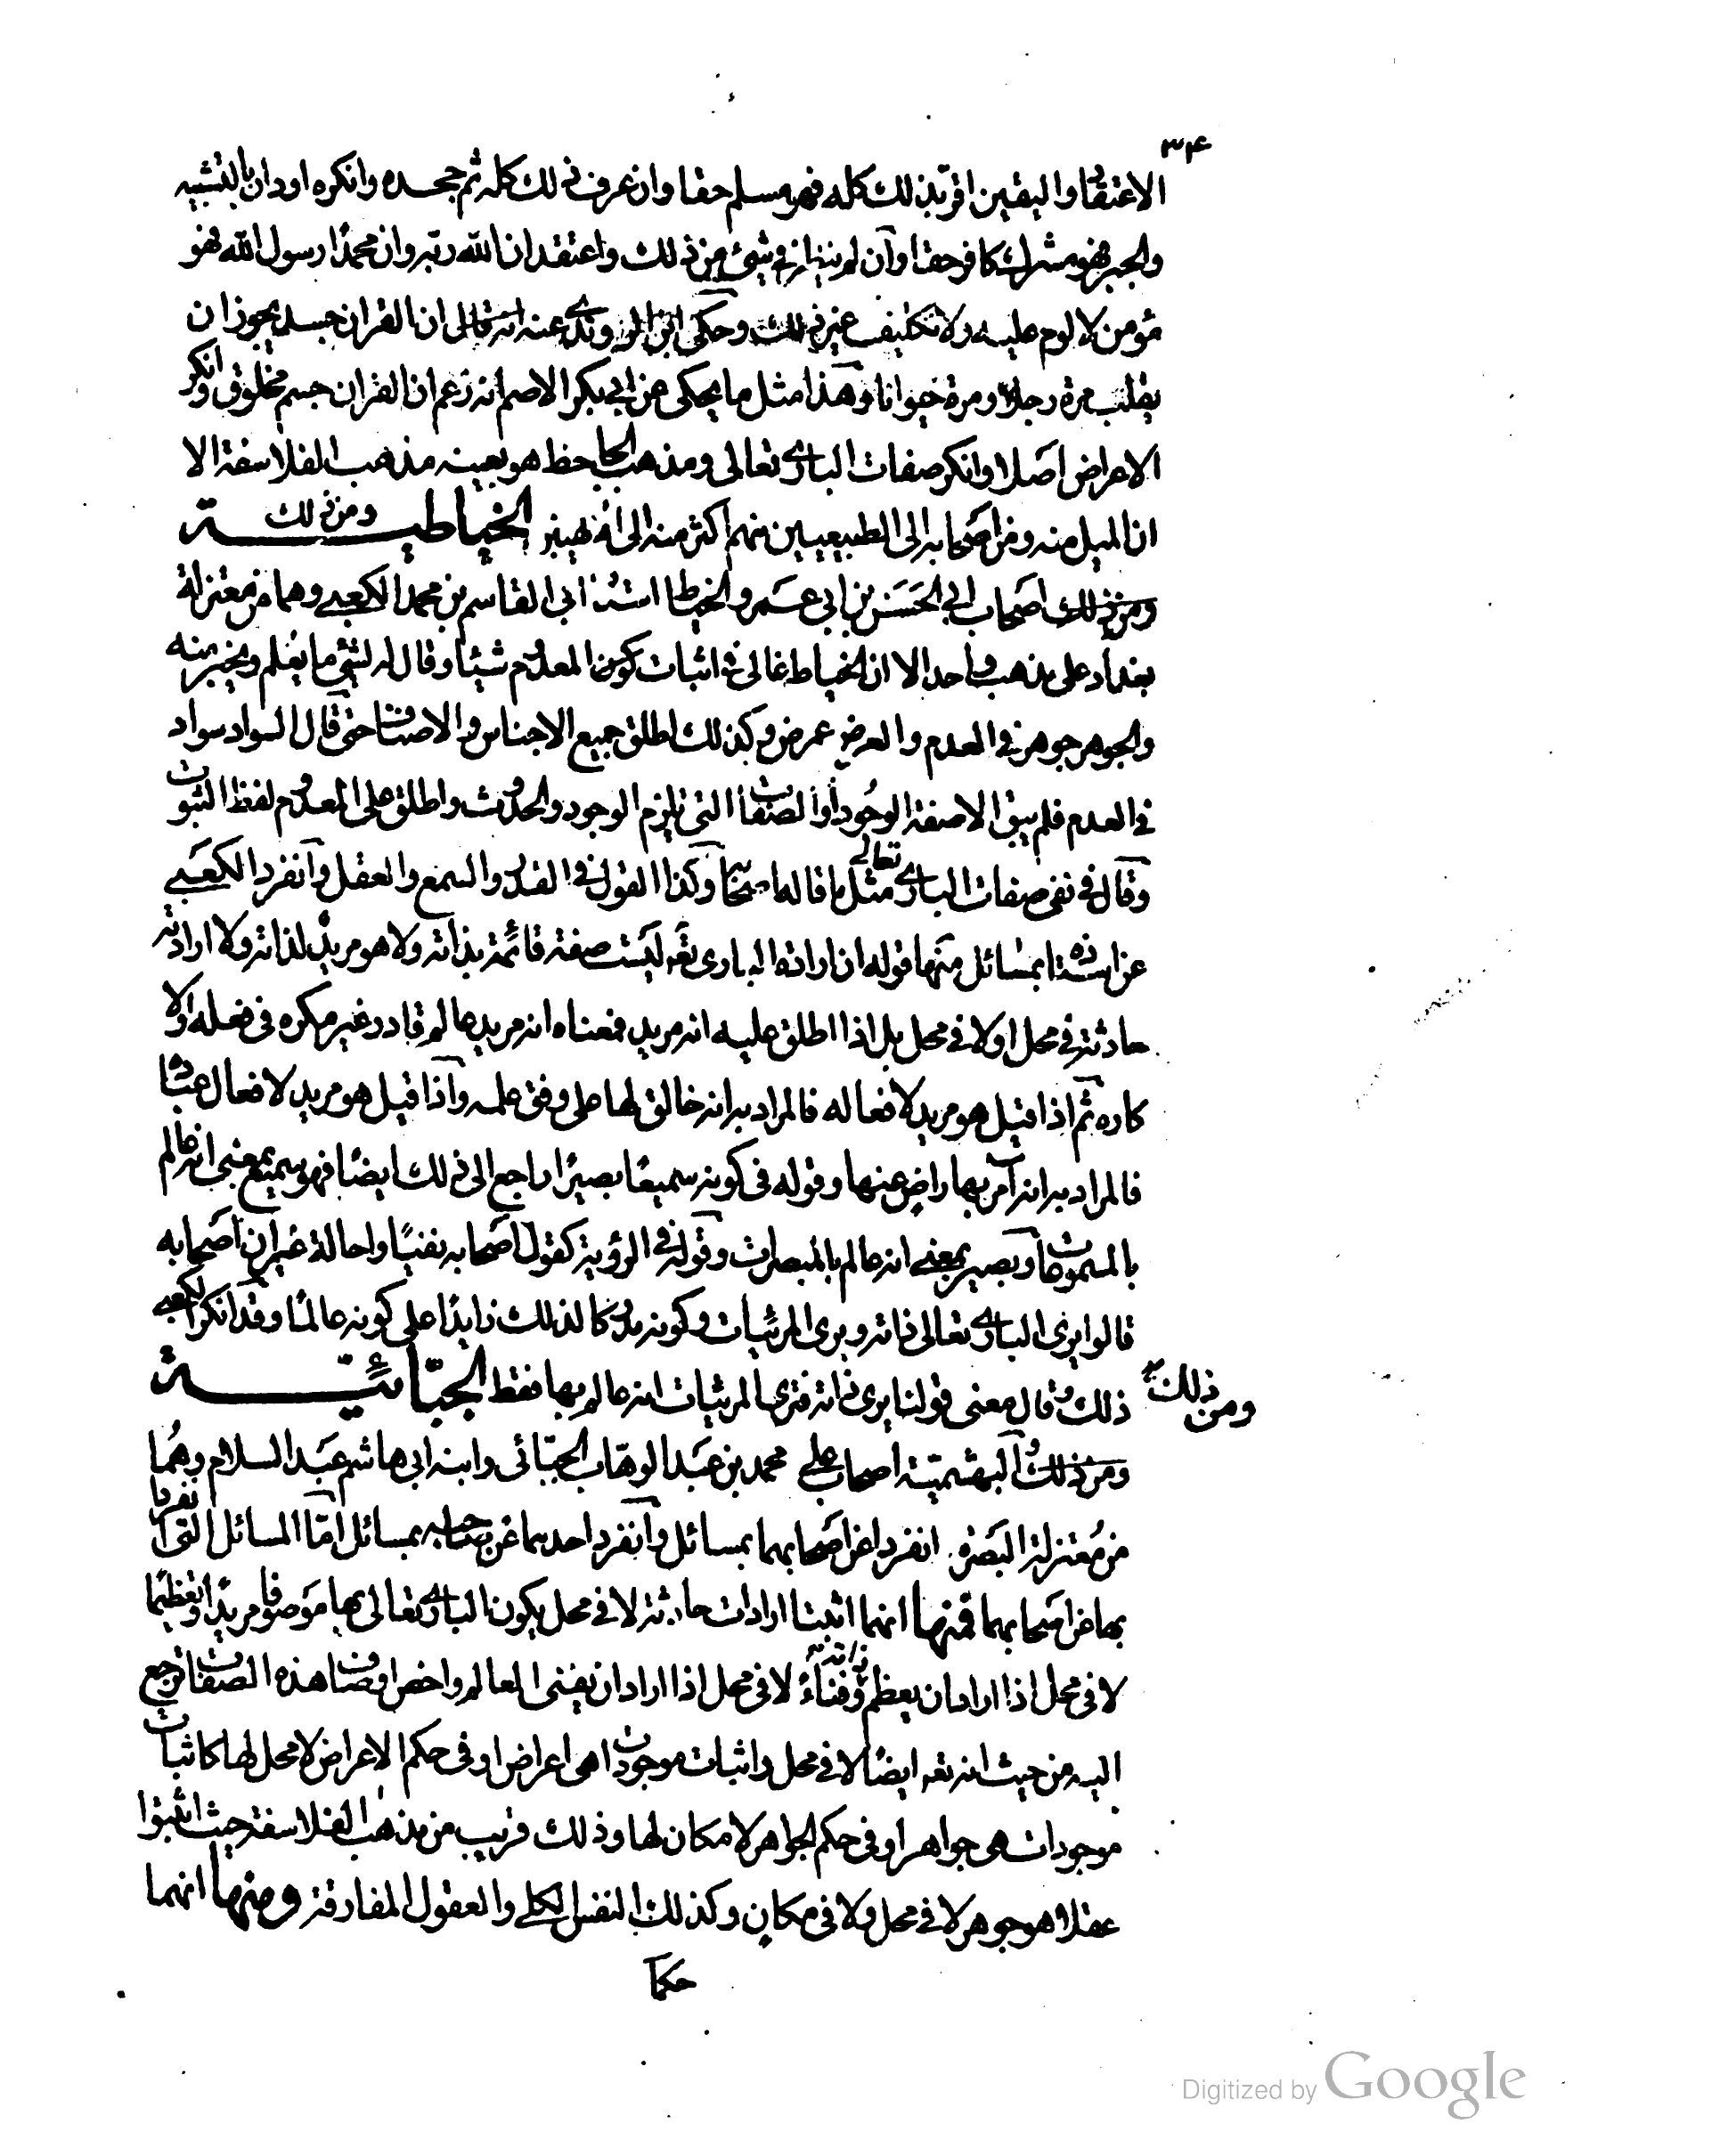 ٣٤
الاعتقاد واليقين اقر بذلك كله فهو مسلم حقا وان عرف ذلك كله ثم جحده وانكره او دان بالتشبيه
والجبر فهو مشرك كافر حقا وآن لم ينظر في شئ من ذلك واعتقد ان الله ربه وان محمدًا رسول الله فهو
مؤمن لا لوم عليه ولا تكليف غير ذلك وحكى ابن الروندى عنه انه قال ان القران جسد يجوز ان
يقلب مرة رجلا ومرة حيوانا وهذا مثل ما يحكى عن ابي بكر الاصم انه زعم ان القران جسم مخلوق وانكر
الاعراض اصلا وانكر صفات البارى تعالى ومذهب الجاحظ هو بعينه مذهب الفلاسفة الا
ان الميل منه ومن اصحابه الى الطبيعيين منهم اكثر منه الى الالهيين ومن ذلك الخياطية
ومن ذلك اصحاب ابي الحسن بن ابي عمرو الخياط استاذ ابى القاسم بن محمد الكعبي وهما من معتزلة
بغداد على مذهب واحد الا ان الخياط غالى في اثبات كون المعدوم شيئا وقال الشئ ما يعلم ويخبر عنه
والجوهر جوهر في العدم والعرض عرض وكذلك اطلق جميع الاجناس والاصناف حتى قال السواد سواد
في العدم فلم يبق الا صفة الوجود او الصفات التى تلزم الوجود والحدوث واطلق على المعدوم لفظ الثبوت
وقال في نفى صفات البارى تعالى مثل ما قاله اصحابه وكذا القول في القدر والسمع والعقل وآنفرد الكعبي
عن استاذه بمسائل منها قوله ان ارادة البارى تعه ليست صفة قائمة بذاته ولا هو مريد لذاته ولا ارادته
حادثة في محل او لا في محل بل اذا اطلق عليه انه مريد فمعناه انه عالم قادر غير مكره في فعله ولا
كاره ثم اذا قيل هو مريد لافعاله فالمراد به انه خالق لها على وفق علمه وآذا قيل هو مريد لافعال عباده
فالمراد به انه آمر بها راض عنها وقوله فى كونه سميعًا بصيرًا راجع الى ذلك ايضًا فهو سميع بمعنى انه عالم
بالمسموعات وبصير بمعنى انه عالم بالمبصرات وقوله في الرؤية كقول اصحابه نفيًا واحالة غير ان اصحابه
قالوا يرى البارى تعالى ذاته ويرى المرئيات وكونه مدركا لذلك زايدًا على كونه عالمًا وقد انكر الكعبي
ذلك وقال معنى قولنا يرى ذاته ويرى المرئيات انه عالم بها فقط ومن ذلك الجبّائيّة
ومن ذلك البهشمية اصحاب علي محمد بن عبد الوهاب الجبّائى وابنه ابى هاشم عبد السلام وهُما
من مُعتزلة البَصرة انفردا عن اصحابهما بمسائل وآنفرد احدهما عن صاحبه بمسائل امّا المسائل التى انفردا
بها عن اصحابهما فمنها انهما اثبتا ارادات حادثة لا في محل يكون البارى تعالى بها موصوفا مريدًا وتعظيمًا
لا فى محل اذا اراد ان يعظم ذاته وفناءً لا فى محل اذا اراد ان يفنى العالم واخص اوصاف هذه الصفات ترجع
اليه من حيث انه تعه ايضًا لا في محل واثبات موجودات هى اعراض او فى حكم الاعراض لا محل لها كاثبات
موجودات هى جواهر او فى حكم الجواهر لا مكان لها وذلك قريب من مذهب الفلاسفة حيث اثبتوا
عقلا هو جوهر لا في محل ولا في مكان وكذلك النفس الكلي والعقول المفارقة ومنها انهما
حكما
Digitized by Google